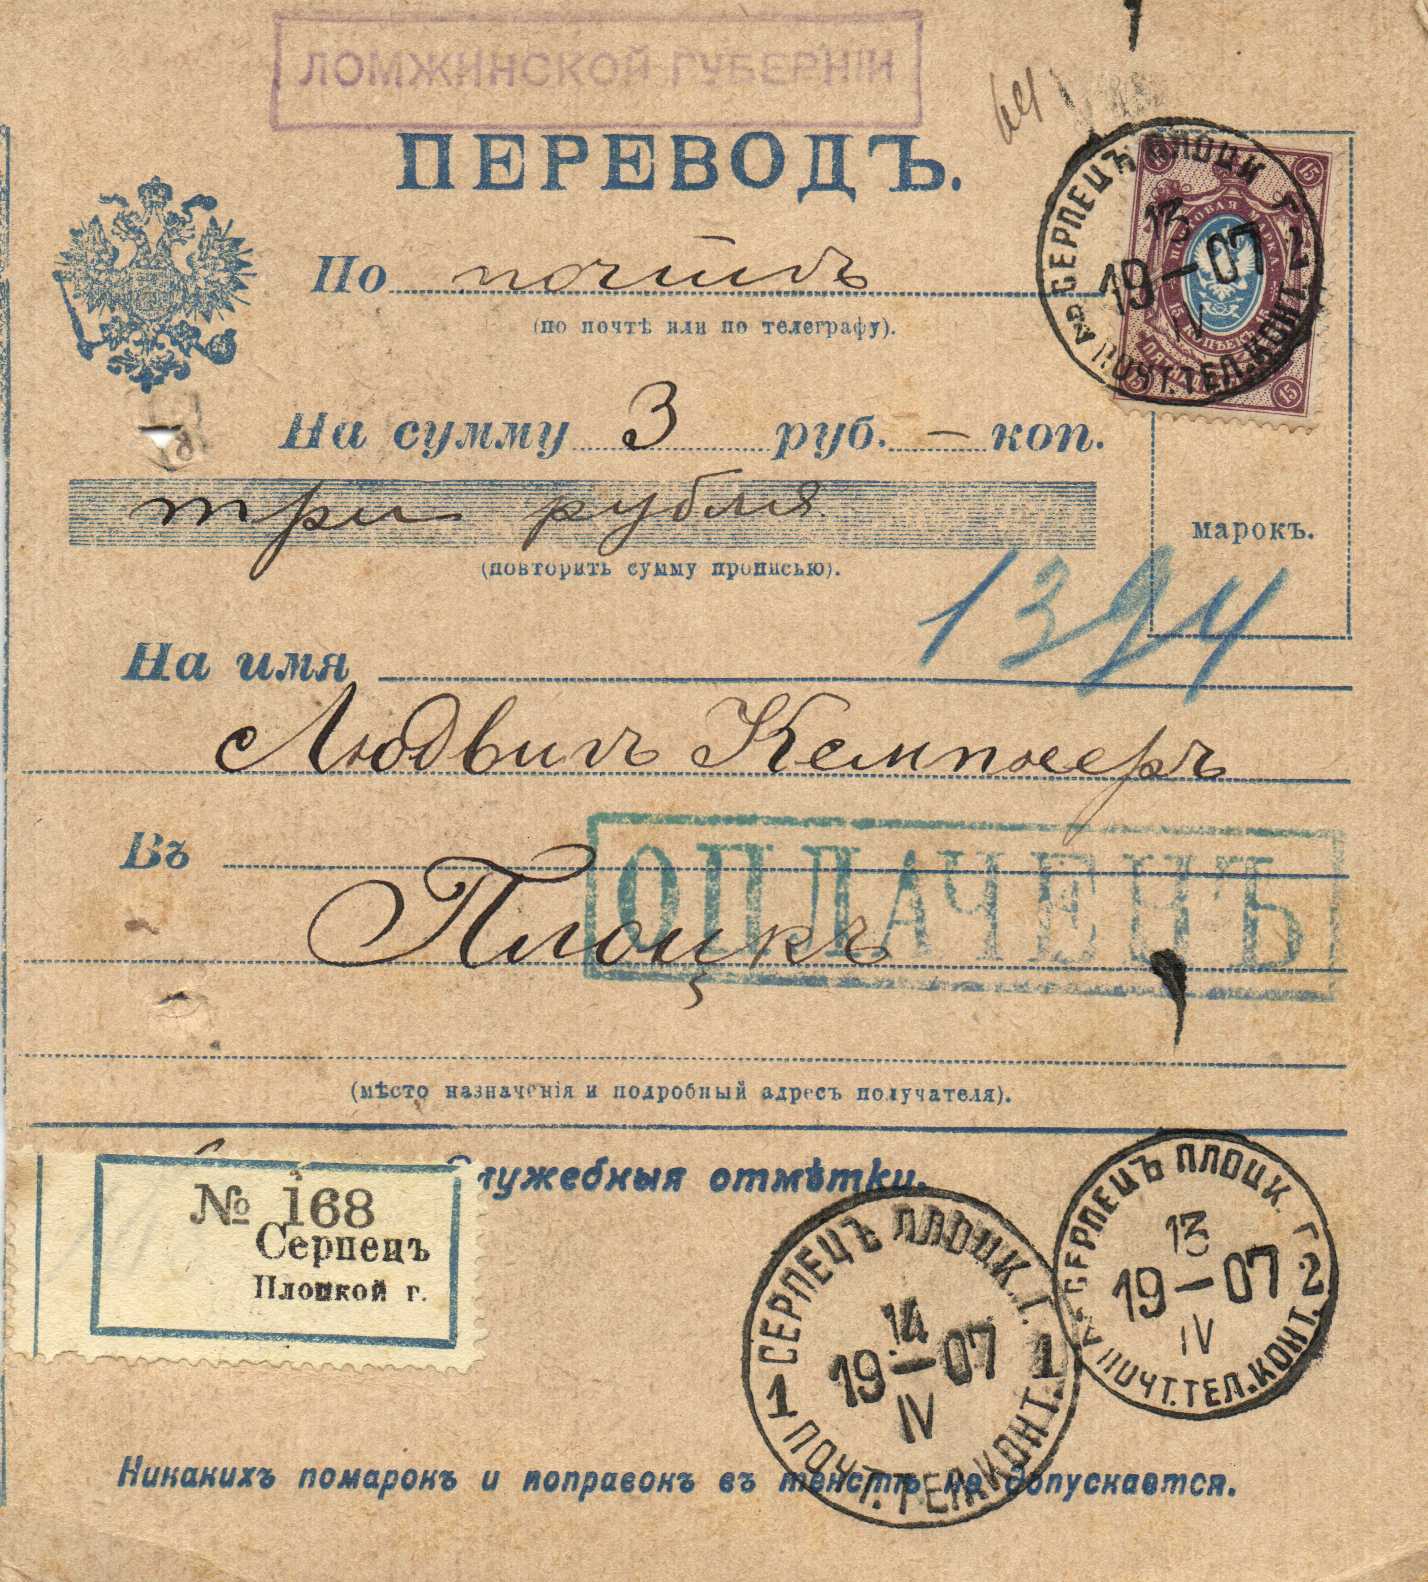 ЛОМЖИНСКОЙ ГУБЕРНІИ
ПЕРЕВОДЪ.
По почтѣ
(по почтѣ или по телеграфу).
СЕРПЕЦЪ ПЛОЦК. Г. 2
13
19-07
IV
2 ПОЧТ.ТЕЛ.КОНТ.
15
15
15
ПОЧТОВАЯ МАРКА
15 КОПѢЕКЪ
На сумму 3 руб. – коп.
три рубля
(повторить сумму прописью).
марокъ.
1394
На имя
Людвигъ Кемпнеръ
Въ
ОПЛАЧЕНЪ
Плоцкъ
(мѣсто назначенія и подробный адресъ получателя).
Служебныя отмѣтки.
№ 168
Серпецъ
Плоцкой г.
СЕРПЕЦЪ ПЛОЦК. Г.
14
19-07
IV
1 1
ПОЧТ.ТЕЛ.КОНТ.
СЕРПЕЦЪ ПЛОЦК. Г.
13
19-07
IV
2 2
ПОЧТ.ТЕЛ.КОНТ.
Никакихъ помарокъ и поправокъ въ текстѣ не допускается.